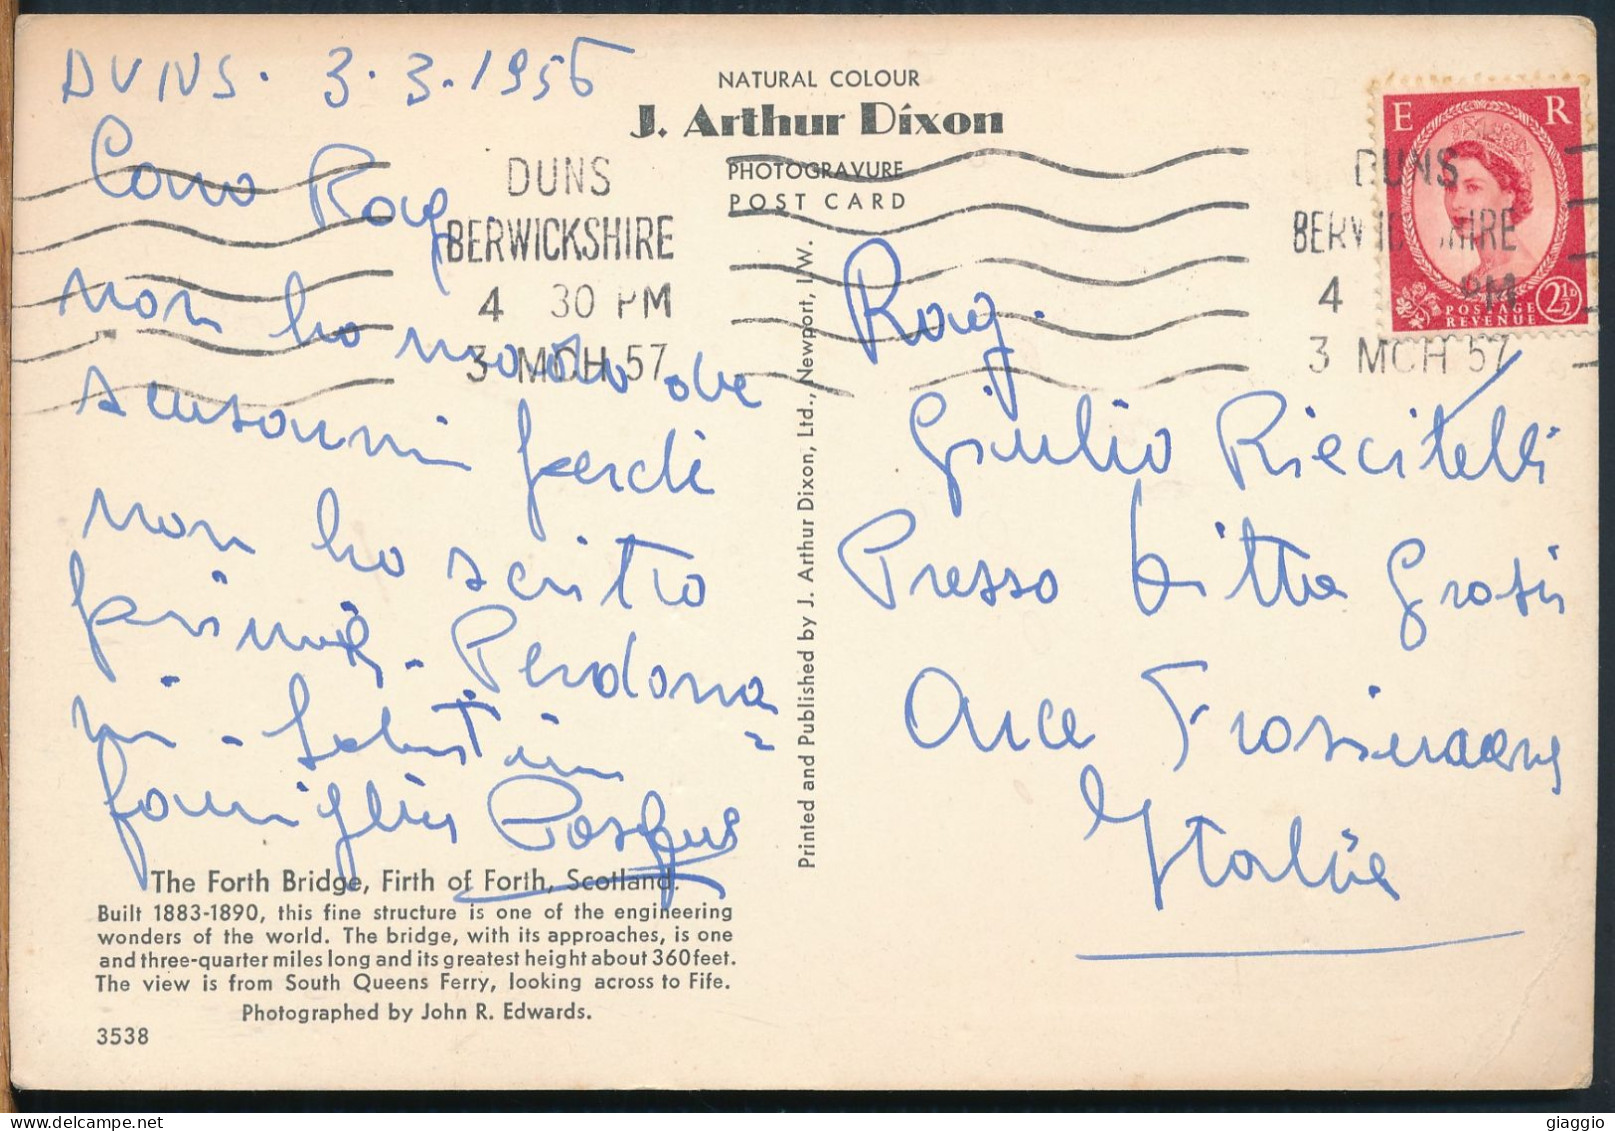 DUNS. 3.3.1956
Caro Rag
non ho modo che
scusarmi perché
non ho scritto
prima. Perdona=
mi. Saluti in
famiglia Pasqus
NATURAL COLOUR
J. Arthur Dixon
PHOTOGRAVURE
POST CARD
DUNS
BERWICKSHIRE
4 30 PM
3 MCH 57
E R
POSTAGE
REVENUE
2½D
DUNS
BERWICKSHIRE
4 PM
3 MCH 57
Printed and Published by J. Arthur Dixon, Ltd., Newport, I.W.
Rag.
Giulio Riecitelli
Presso Ditta Grossi
Arce Frosinone
Italia
The Forth Bridge, Firth of Forth, Scotland.
Built 1883-1890, this fine structure is one of the engineering
wonders of the world. The bridge, with its approaches, is one
and three-quarter miles long and its greatest height about 360 feet.
The view is from South Queens Ferry, looking across to Fife.
Photographed by John R. Edwards.
3538
giaggio